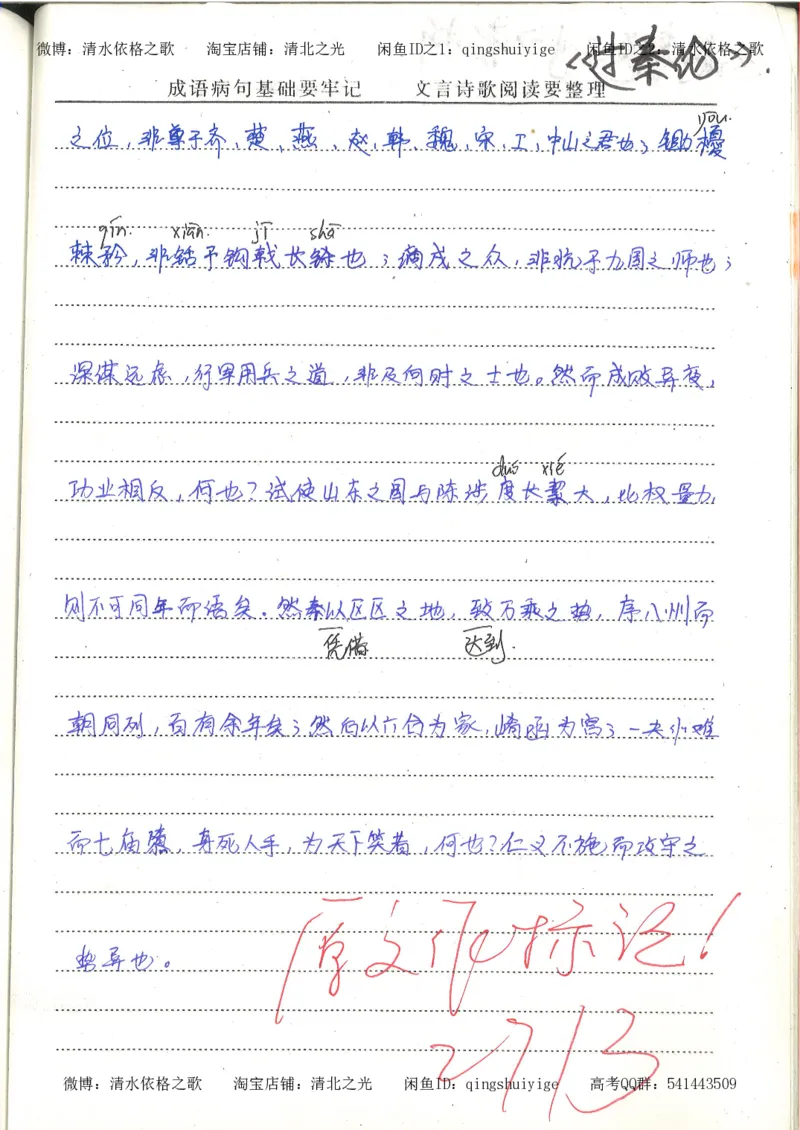 微博：清水依格之歌 淘宝店铺：清北之光 闲鱼ID之1：qingshuiyige 闲鱼ID之2：清水依格之歌
《过秦论》.
成语病句基础要牢记 文言诗歌阅读要整理
yōu.
之位，非尊于齐、楚、燕、赵、韩、魏、宋、卫、中山之君也；锄櫌
qín. xiān. jǐ shā
棘矜，非铦于钩戟长铩也；谪戍之众，非抗于九国之师也；
深谋远虑，行军用兵之道，非及向时之士也。然而成败异变，
duó xié
功业相反，何也？试使山东之国与陈涉度长絜大，比权量力，
则不可同年而语矣。然秦以区区之地，致万乘之势，序八州而
凭借 达到.
朝同列，百有余年矣；然后以六合为家，崤函为宫；一夫作难
而七庙隳，身死人手，为天下笑者，何也？仁义不施而攻守之
势异也。
原文作标记！
27/3
微博：清水依格之歌 淘宝店铺：清北之光 闲鱼ID：qingshuiyige 高考QQ群：541443509